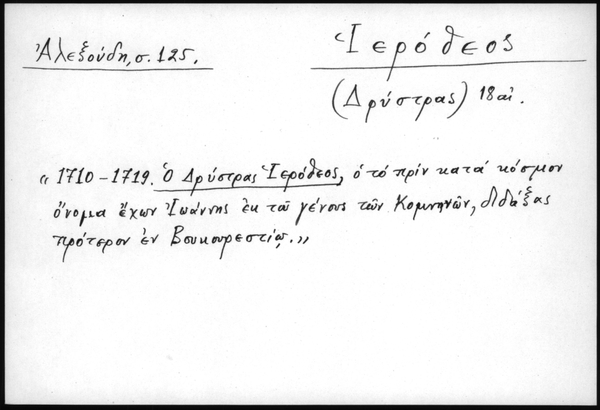 Ἀλεξούδη, σ. 125.
Ἱερόθεος
(Δρύστρας) 18 αἰ.
« 1710 - 1719. Ὁ Δρύστρας Ἱερόθεος, ὁ τό πρίν κατά κόσμον
ὄνομα ἔχων Ἰωάννης ἐκ τοῦ γένους τῶν Κομνηνῶν, διδάξας
πρότερον ἐν Βουκουρεστίῳ. »